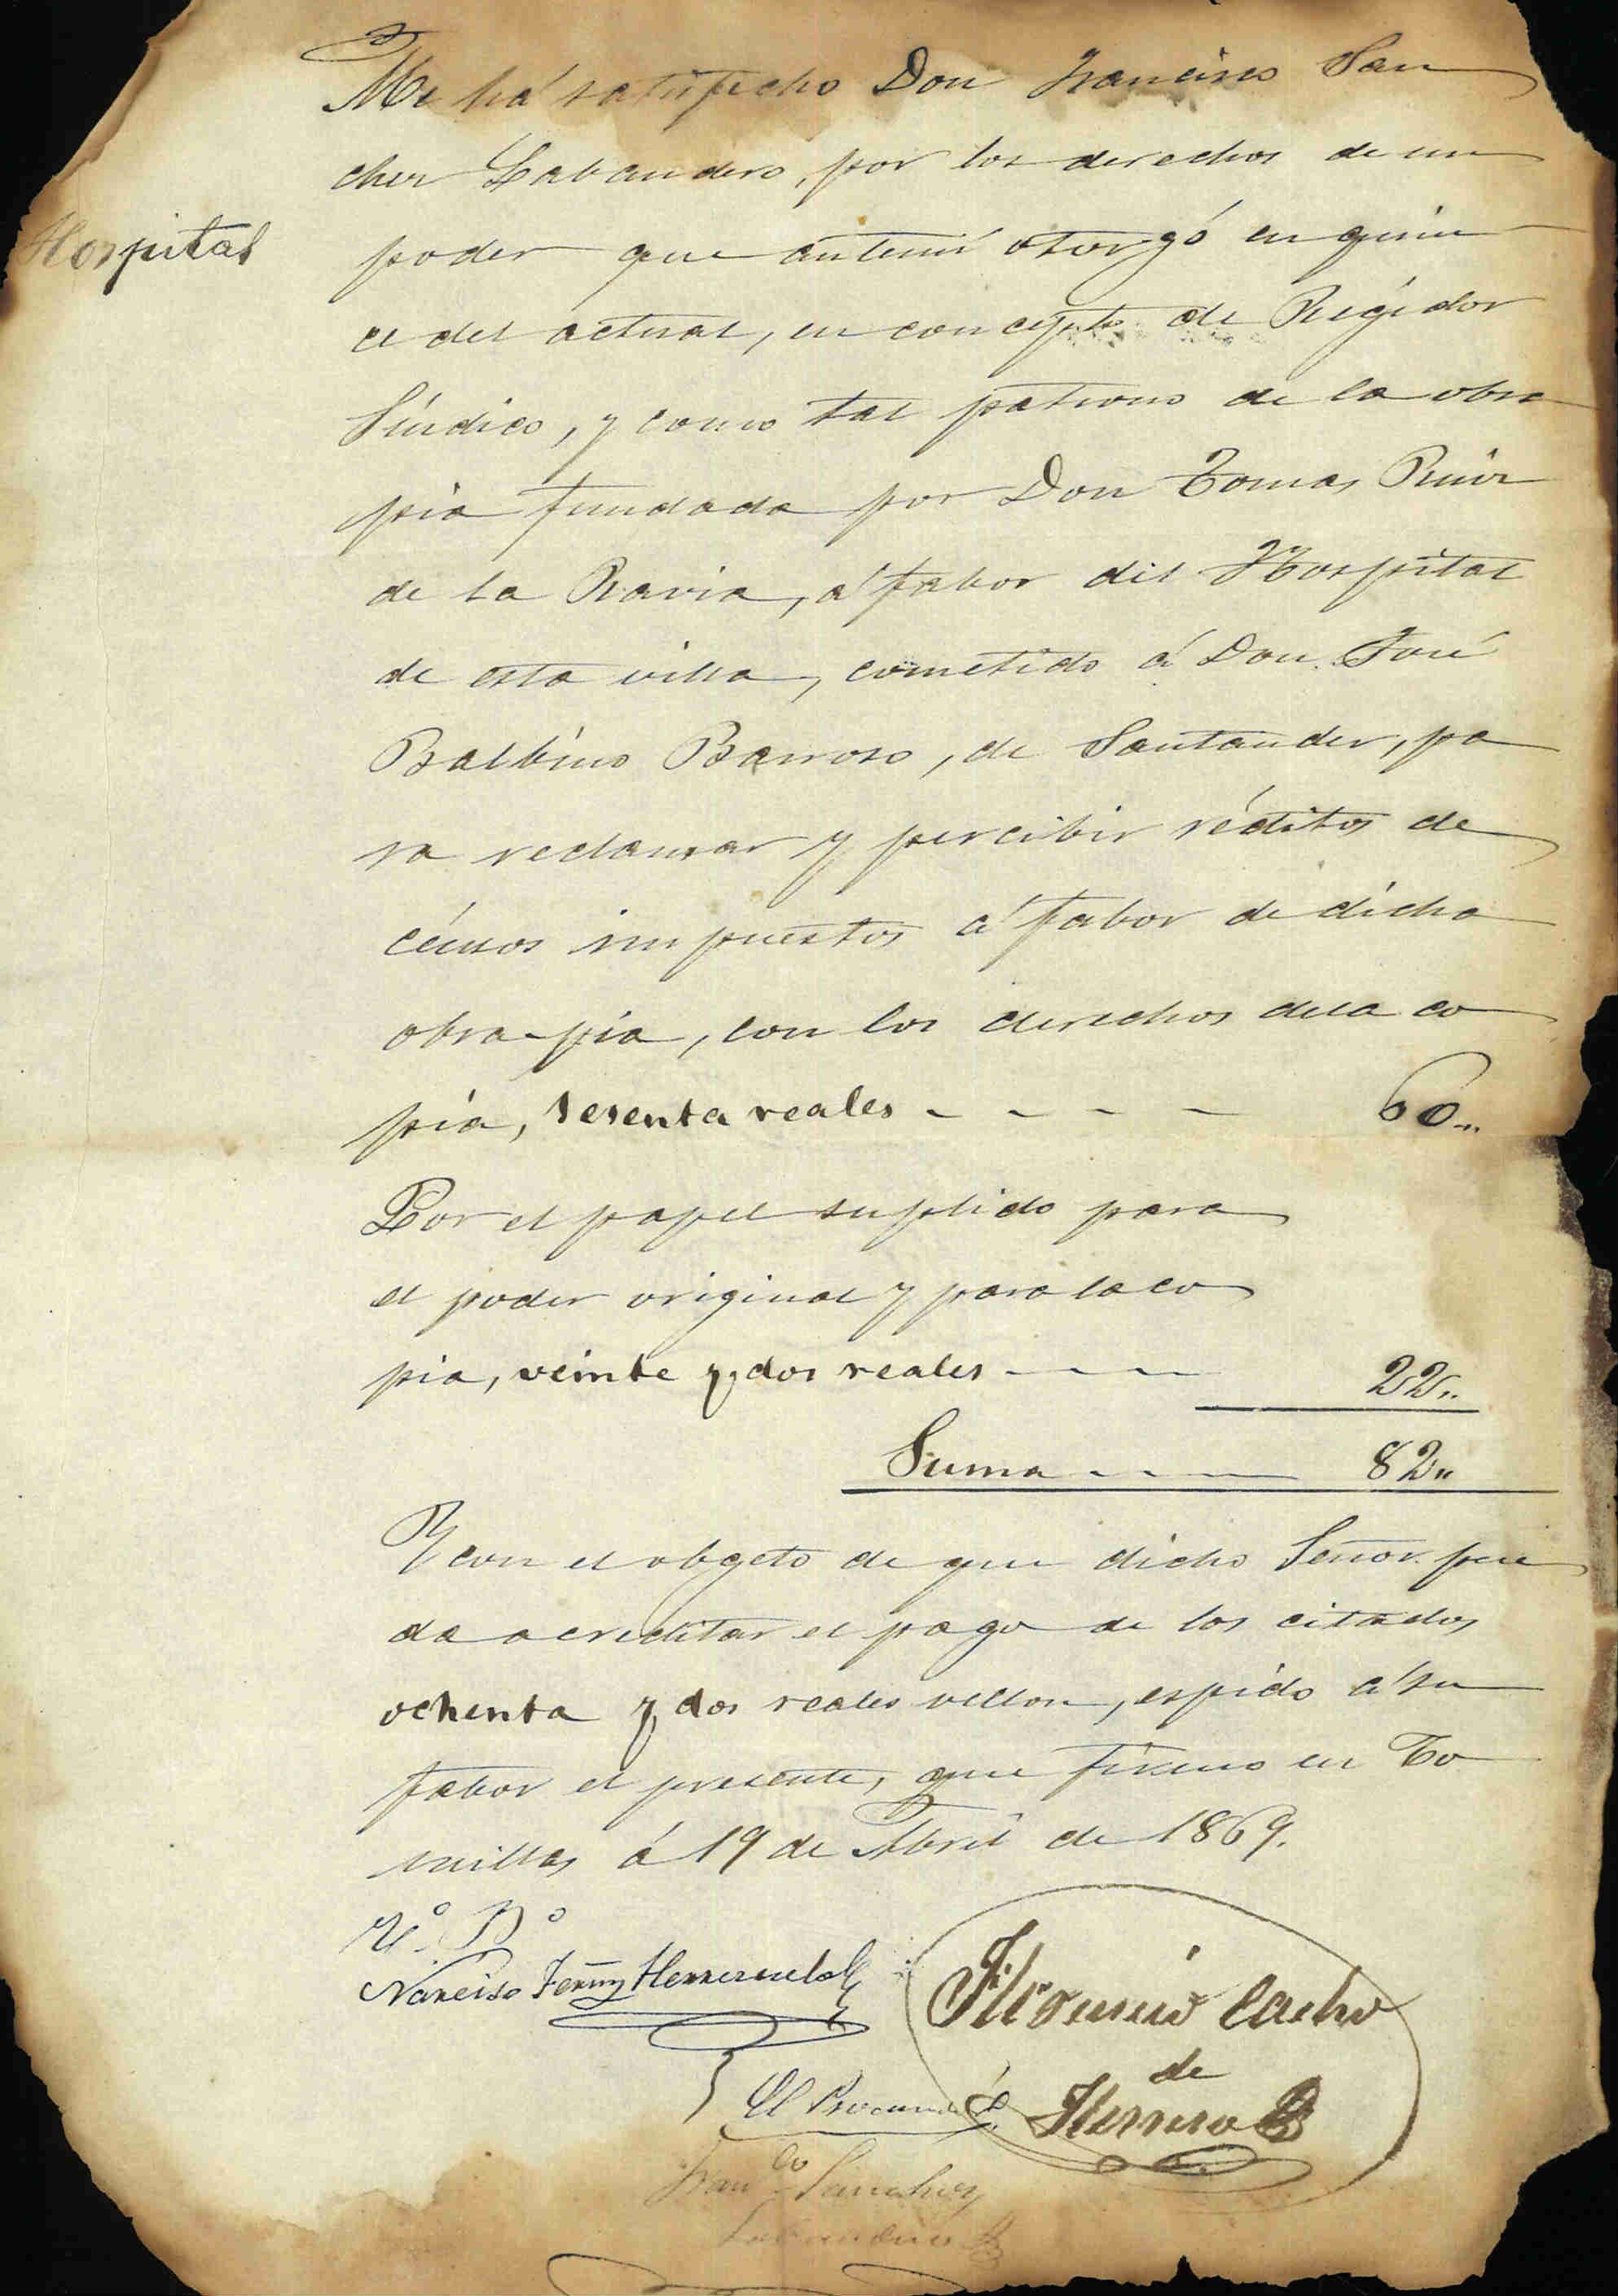 Me há satisfecho Don Francisco San
chez Labandero, por los derechos de un
Hospital
poder que antemí otorgó en quin
ce del actual, en concepto de Regidor
Síndico, y como tal patrono de la obra
pia fundada por Don Tomas Ruiz
de la Ravia, á fabor del Hospital
de esta villa, cometido á Don José
Balbino Barroso, de Santander, pa
ra reclamar y percibir réditos de
cénsos impuestos á fabor de dicha
obra-pia, con los derechos dela co
pia, sesenta reales - - - - 60..
Por el papel suplido para
el poder original y para la co
pia, veinte y dos reales - - - 22..
Suma - - - 82..
Y con el obgeto de que dicho Señor pue
da acreditar el pago de los citados
ochenta y dos reales vellon, espido á su
fabor el presente, que firmo en Co
millas á 19 de Abril de 1869.
Vº. Bº
Narciso Fernz Herreruela
Filomeno Cacho
de
Herrero
El Procurador
Franco Sanchez
Labandero